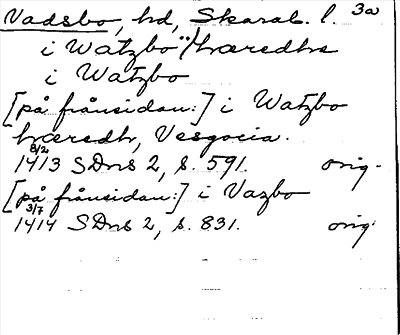 Vadsbo, hd, Skarab. l. 3a
i Watzbo¨/hæredhe
i Watzbo
[på frånsidan:] i Watzbo
hæredh, Vesgocia.
1413 8/2 SDns 2, s. 591. orig.
[på frånsidan:] i Vazbo
1414 3/7 SDns 2, s. 831. orig.